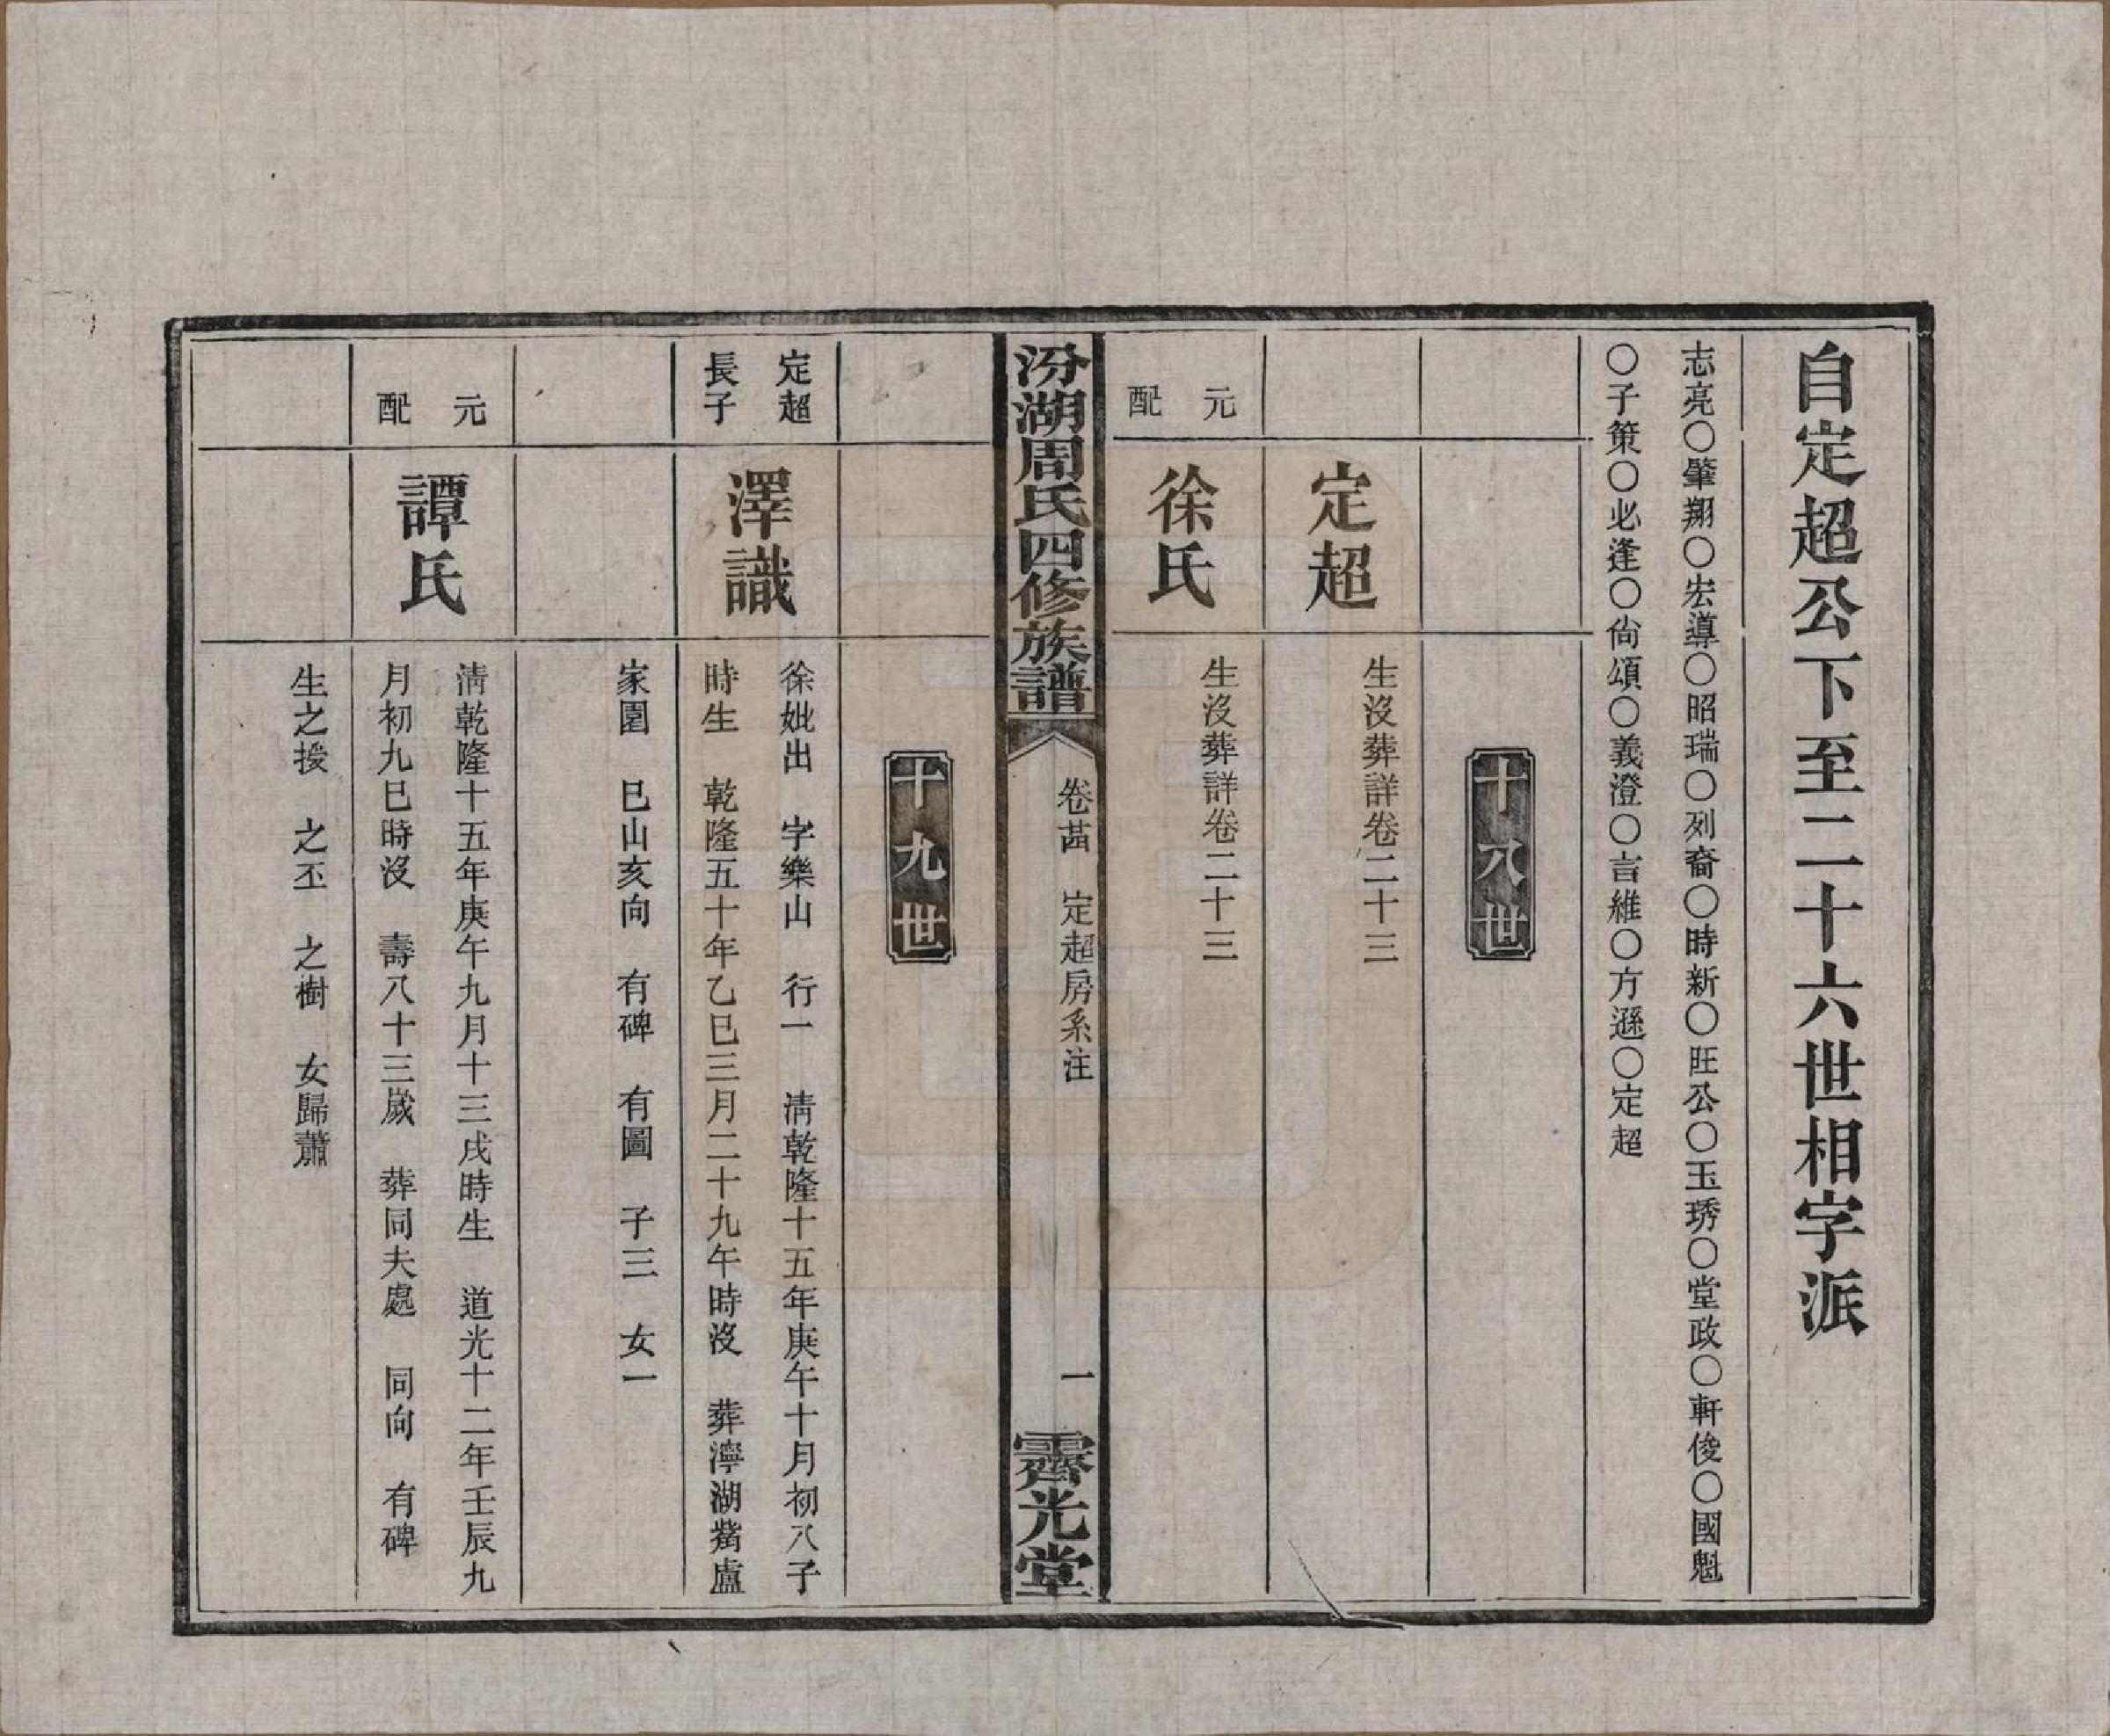 自定超公下至二十六世相字派
志亮〇肇翔〇宏導〇昭瑞〇列裔〇時新〇旺公〇玉琇〇堂政〇軒俊〇國魁
〇子策〇必逢〇尙頌〇義澄〇言維〇方遜〇定超
十八世
定超
生沒葬詳卷二十三
元配
徐氏
生沒葬詳卷二十三
汾湖周氏四修族譜
卷 定超房系注
一
霽光堂
十九世
定超長子
澤識
徐妣出 字樂山 行一 淸乾隆十五年庚午十月初八子
時生 乾隆五十年乙巳三月二十九午時沒 葬濘湖觜盧
家園 巳山亥向 有碑 有圖 子三 女一
元配
譚氏
淸乾隆十五年庚午九月十三戌時生 道光十二年壬辰九
月初九巳時沒 壽八十三嵗 葬同夫處 同向 有碑
生之授 之丕 之樹 女歸蕭